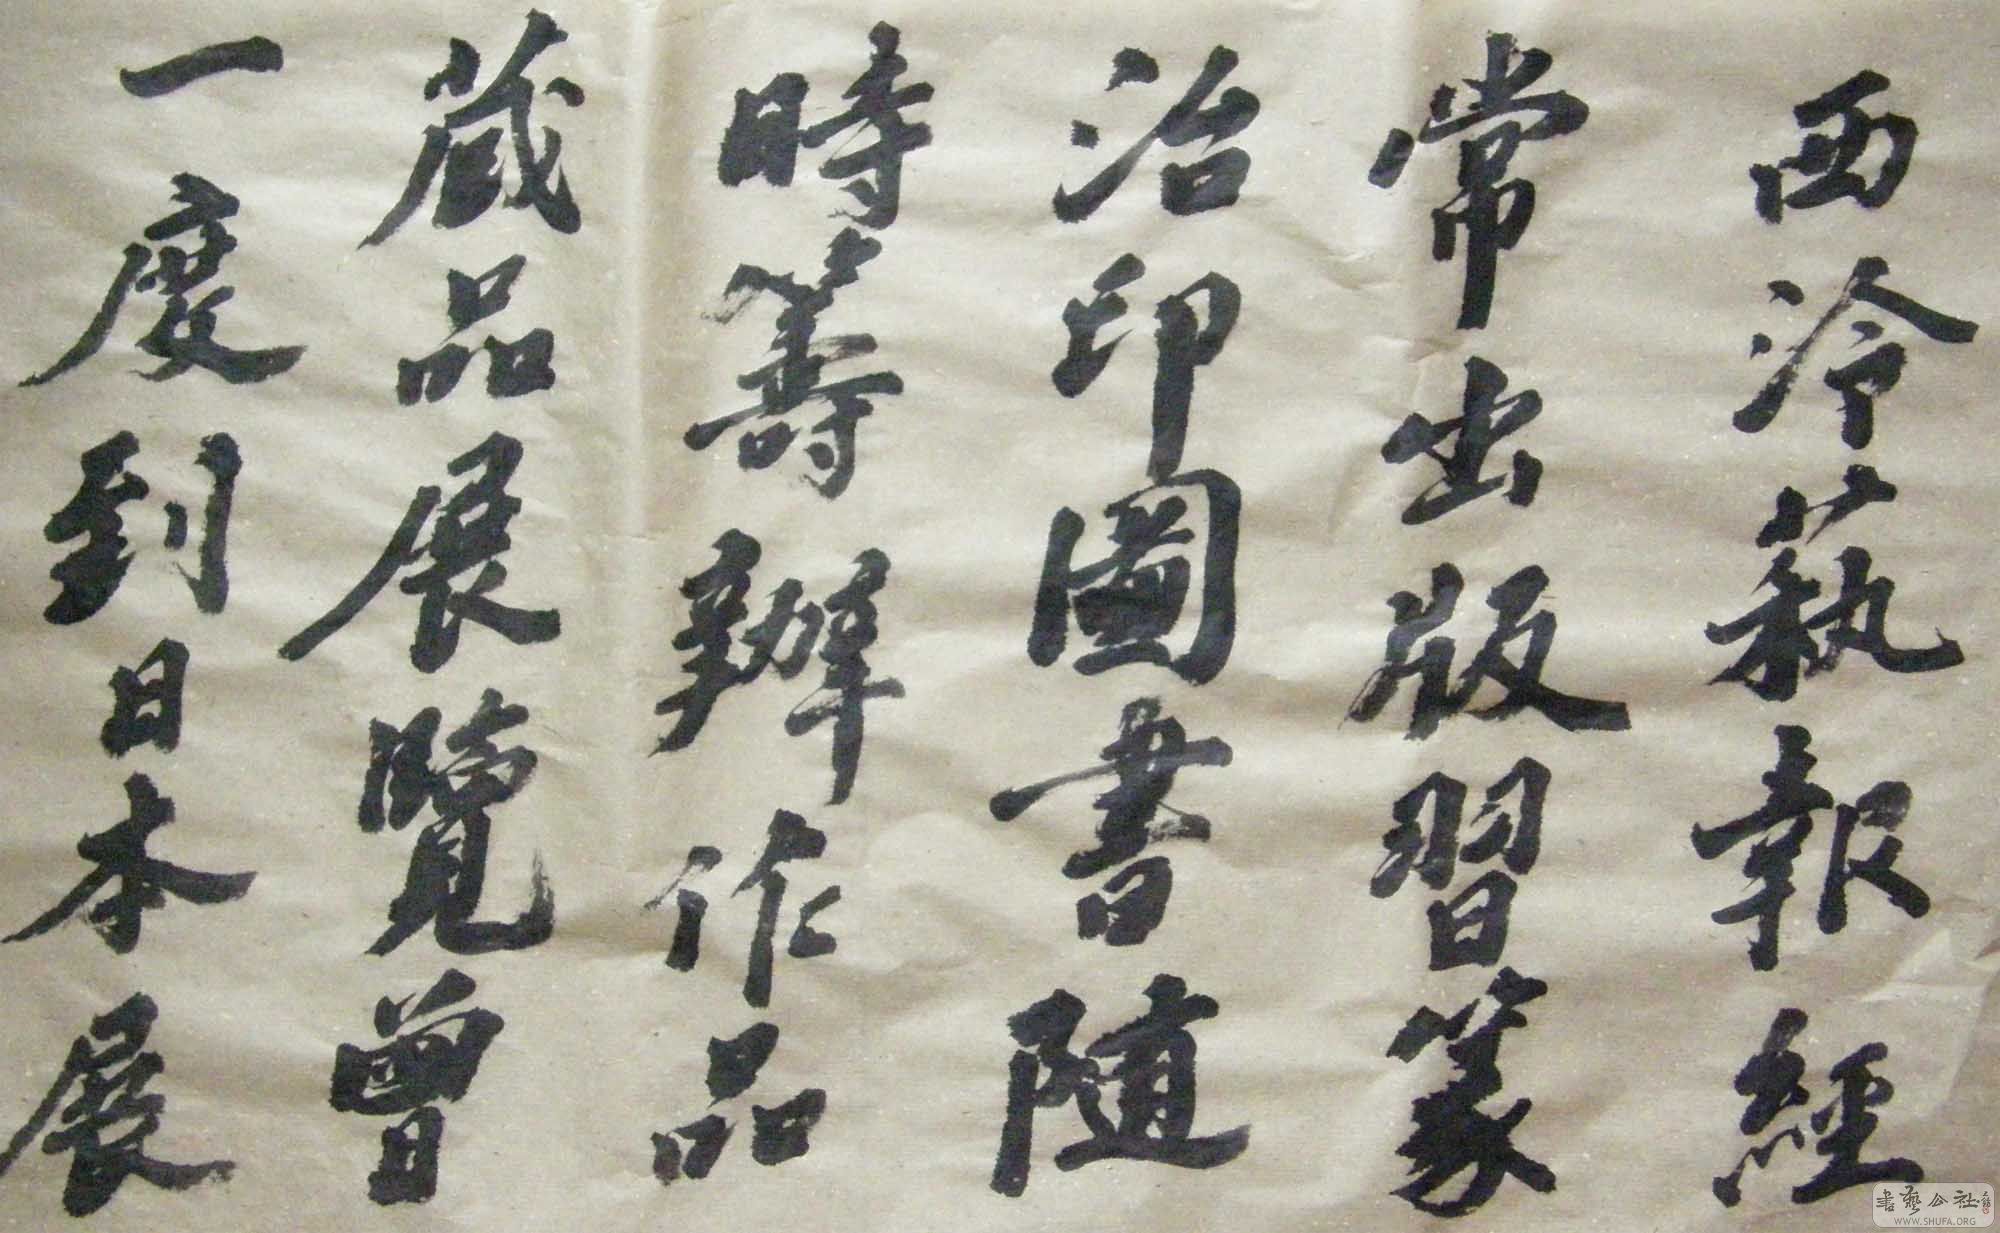 西泠藝報經
常出版習篆
治印圖書随
時籌辦作品
藏品展覽曾
一度到日本展
書藝公社
WWW.SHUFA.ORG